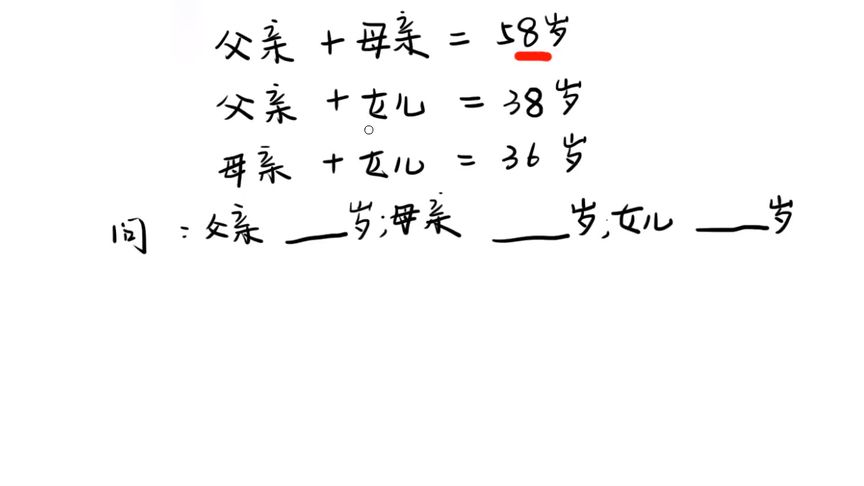 父亲 + 母亲 = 58岁
父亲 + 女儿 = 38岁
母亲 + 女儿 = 36岁
问：父亲 ___岁;母亲 ___岁;女儿 ___岁